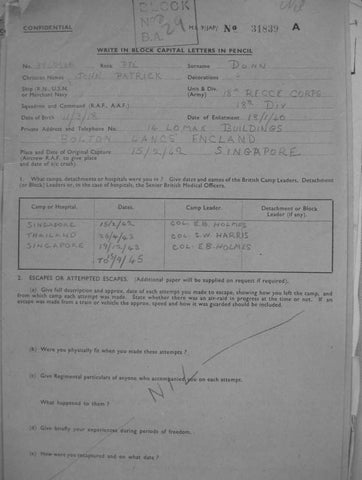 BLOCK
No 2
B.2. 29
CONFIDENTIAL
M.I. 9/JAP/ No 31839 A
WRITE IN BLOCK CAPITAL LETTERS IN PENCIL
No. Rank PTE Surname DONN
Christian Names JOHN PATRICK Decorations -
Ship (R.N., U.S.N. or Merchant Navy) Unit & Div. (Army) 18TH RECCE CORPS
Squadron and Command (R.A.F., A.A.F.) 18TH DIV
Date of Birth /3/18 Date of Enlistment 18/1/40
Private Address and Telephone No. 14 LOMAX BUILDINGS
BOLTON LANCS ENGLAND
Place and Date of Original Capture 15/2/42 SINGAPORE
(Aircrew R.A.F. to give place and date of a/c crash)
1. What camps, detachments or hospitals were you in ? Give dates and names of the British Camp Leaders. Detachment
(or Block) Leaders or, in the case of hospitals, the Senior British Medical Officers.
Camp or Hospital. Dates. Camp Leader. Detachment or Block Leader (if any).
SINGAPORE 15/2/42 COL. E.B. HOLMES
THAILAND 26/4/43 COL. S.W. HARRIS
SINGAPORE 19/12/43 COL. E.B. HOLMES
TO 5/9/45
2. ESCAPES OR ATTEMPTED ESCAPES. (Additional paper will be supplied on request if required).
(a) Give full description and approx. date of each attempt you made to escape, showing how you left the camp, and
from which camp each attempt was made. State whether there was an air-raid in progress at the time or not. If an
escape was made from a train or vehicle the approx. speed and how it was guarded should be included.
(b) Were you physically fit when you made these attempts ?
(c) Give Regimental particulars of anyone who accompanied you on each attempt.
NIL
What happened to them ?
(d) Give briefly your experiences during periods of freedom.
(e) How were you recaptured and on what date ?